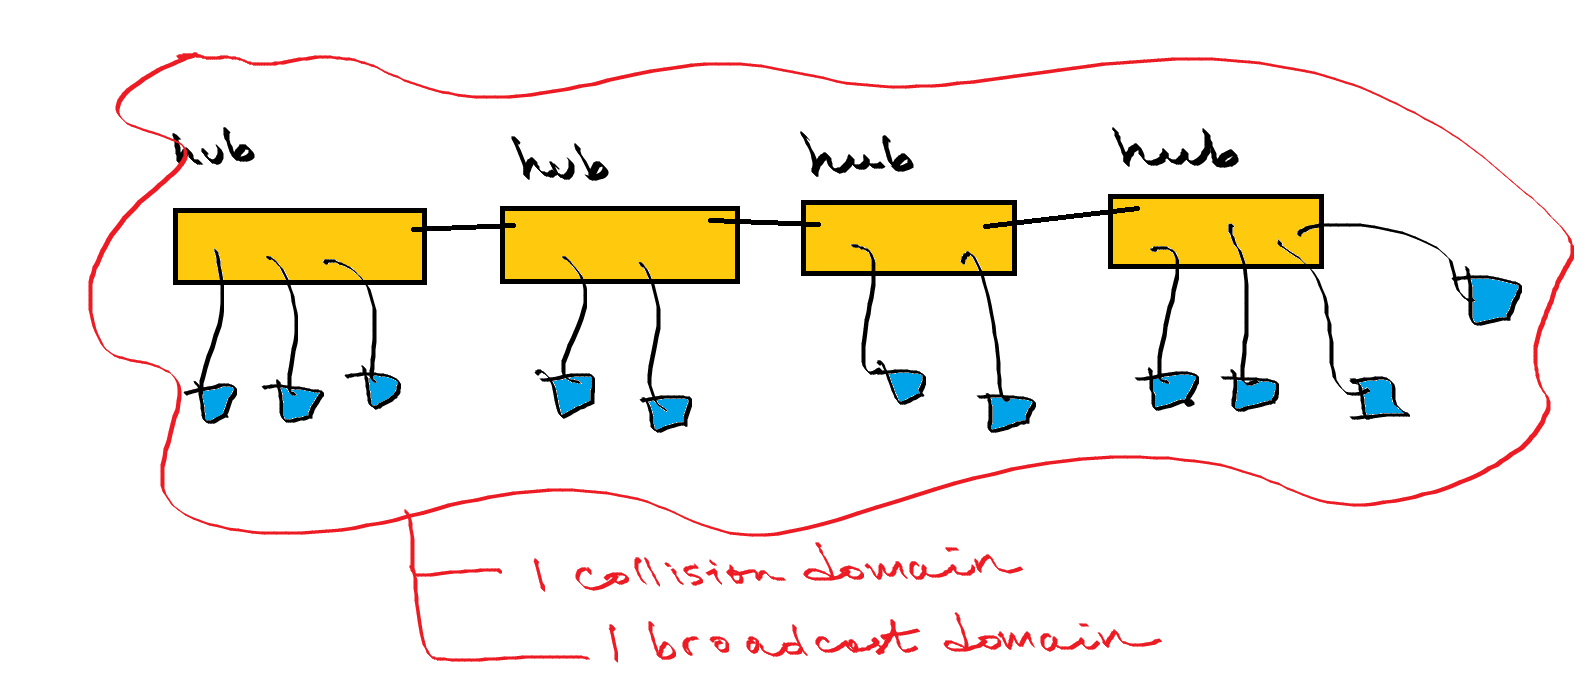 hub hub hub hub
1 collision domain
1 broadcast domain